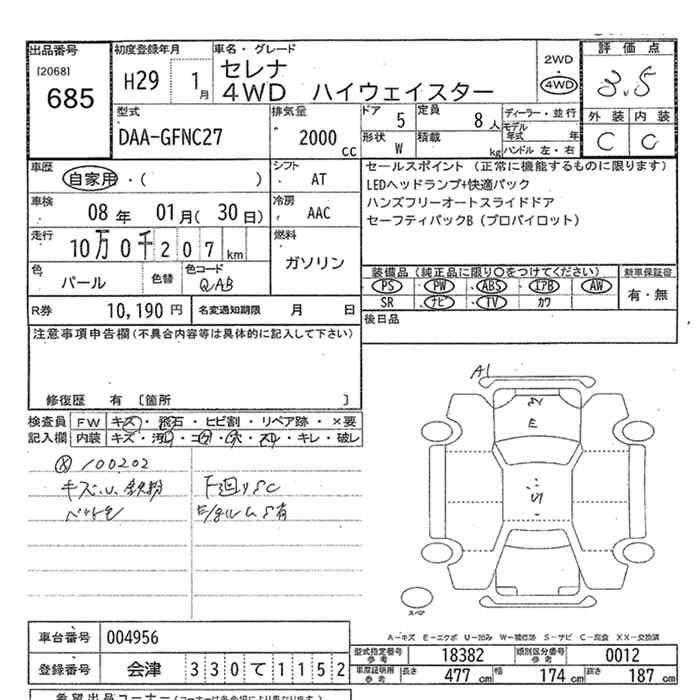 出品番号
[2068]
685
初度登録年月
H29 1月
車名・グレード
セレナ
4WD ハイウェイスター
2WD
・
4WD
評価点
3.5
外装 内装
C C
型式
DAA-GFNC27
排気量
2000 cc
ドア 5
定員 8人
形状 W
積載 kg
ディーラー・並行
モデル年式 年
ハンドル 左・右
車歴
自家用・( )
シフト
AT
車検
08年 01月(30日)
冷房
AAC
走行
10万0千207km
燃料
ガソリン
色
パール
色替
色コード
QAB
R券 10,190円
名変通知期限 月 日
セールスポイント(正常に機能するものに限ります)
LEDヘッドランプ+快適パック
ハンズフリーオートスライドドア
セーフティパックB(プロパイロット)
装備品(純正品に限り○をつけてください)
新車保証書
PS PW ABS エアB AW
SR ナビ TV カワ
有・無
後日品
注意事項申告欄(不具合内容等は具体的に記入して下さい)
修復歴 有 [箇所 ]
検査員記入欄
FW キズ・飛石・ヒビ割・リペア跡・×要
内装 キズ・汚レ・コゲ・穴・スレ・キレ・破レ
100202
キズ.U.鉄粉
F廻りSC
A1
E
S
スペア
A-キズ E-エクボ U-凹み W-補修跡 S-サビ C-腐食 XX-交換済
車台番号 004956
登録番号 会津 330て1152
型式指定番号 参考 18382
類別区分番号 参考 0012
車庫証明用 参考 長さ 477cm 幅 174cm 高さ 187cm
希望出品コーナー